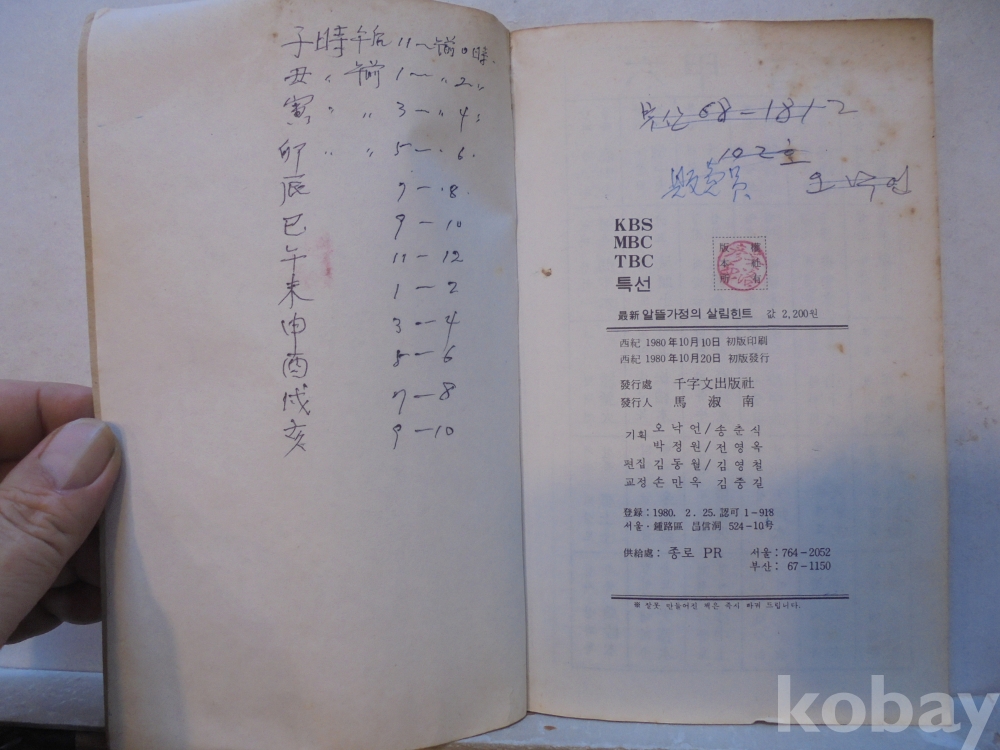 子時 午后 11~午前 0時.
丑 〃 午前 1~〃2〃
寅 〃 〃 3-〃4〃
卯 〃 〃 5-〃6.
辰 7-8
巳 9-10
午 11-12
未 1-2
申 3-4
酉 5-6
戌 7-8
亥 9-10
부산 68-1812
102호
販賣員
KBS
MBC
TBC
특선
最新 알뜰가정의 살림힌트 값 2,200원
西紀 1980年10月10日 初版印刷
西紀 1980年10月20日 初版發行
發行處 千字文出版社
發行人 馬淑南
기획 오낙언/송춘식
박정원/전영옥
편집 김동월/김영철
교정 손만옥 김중길
登録: 1980. 2. 25. 認可 1-918
서울·鍾路區 昌信洞 524-10号
供給處: 종로 PR 서울: 764-2052
부산: 67-1150
※ 잘못 만들어진 책은 즉시 바꿔 드립니다.
kobay